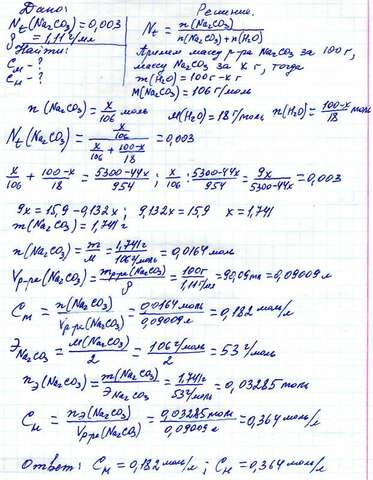 Дано:
N_t(Na₂CO₃)=0,003
ρ = 1,11 г/мл
Найти:
C_м - ?
C_н - ?
Решение.
N_t = n(Na₂CO₃) / (n(Na₂CO₃)+n(H₂O))
Примем массу р-ра Na₂CO₃ за 100г,
массу Na₂CO₃ за x г, тогда
m(H₂O) = 100г - x г
M(Na₂CO₃) = 106 г/моль
n(Na₂CO₃) = x/106 моль M(H₂O)=18 г/моль n(H₂O) = (100-x)/18 моль
N_t(Na₂CO₃) = (x/106) / (x/106 + (100-x)/18) = 0,003
x/106 + (100-x)/18 = (5300-44x)/954 ; x/106 : (5300-44x)/954 = 9x/(5300-44x) = 0,003
9x = 15,9 - 0,132x ; 9,132x = 15,9 x = 1,741
m(Na₂CO₃) = 1,741 г
n(Na₂CO₃) = m/M = 1,741 г / 106 г/моль = 0,0164 моль
Vр-ра(Na₂CO₃) = mр-ра(Na₂CO₃)/ρ = 100г / 1,11 г/мл = 90,09 мл = 0,09009 л
C_м = n(Na₂CO₃) / Vр-ра(Na₂CO₃) = 0,0164 моль / 0,09009 л = 0,182 моль/л
Э Na₂CO₃ = M(Na₂CO₃)/2 = 106 г/моль / 2 = 53 г/моль
nэ(Na₂CO₃) = m(Na₂CO₃) / Э Na₂CO₃ = 1,741 г / 53 г/моль = 0,03285 моль
C_н = nэ(Na₂CO₃) / Vр-ра(Na₂CO₃) = 0,03285 моль / 0,09009 л = 0,364 моль/л
Ответ: C_м = 0,182 моль/л ; C_н = 0,364 моль/л